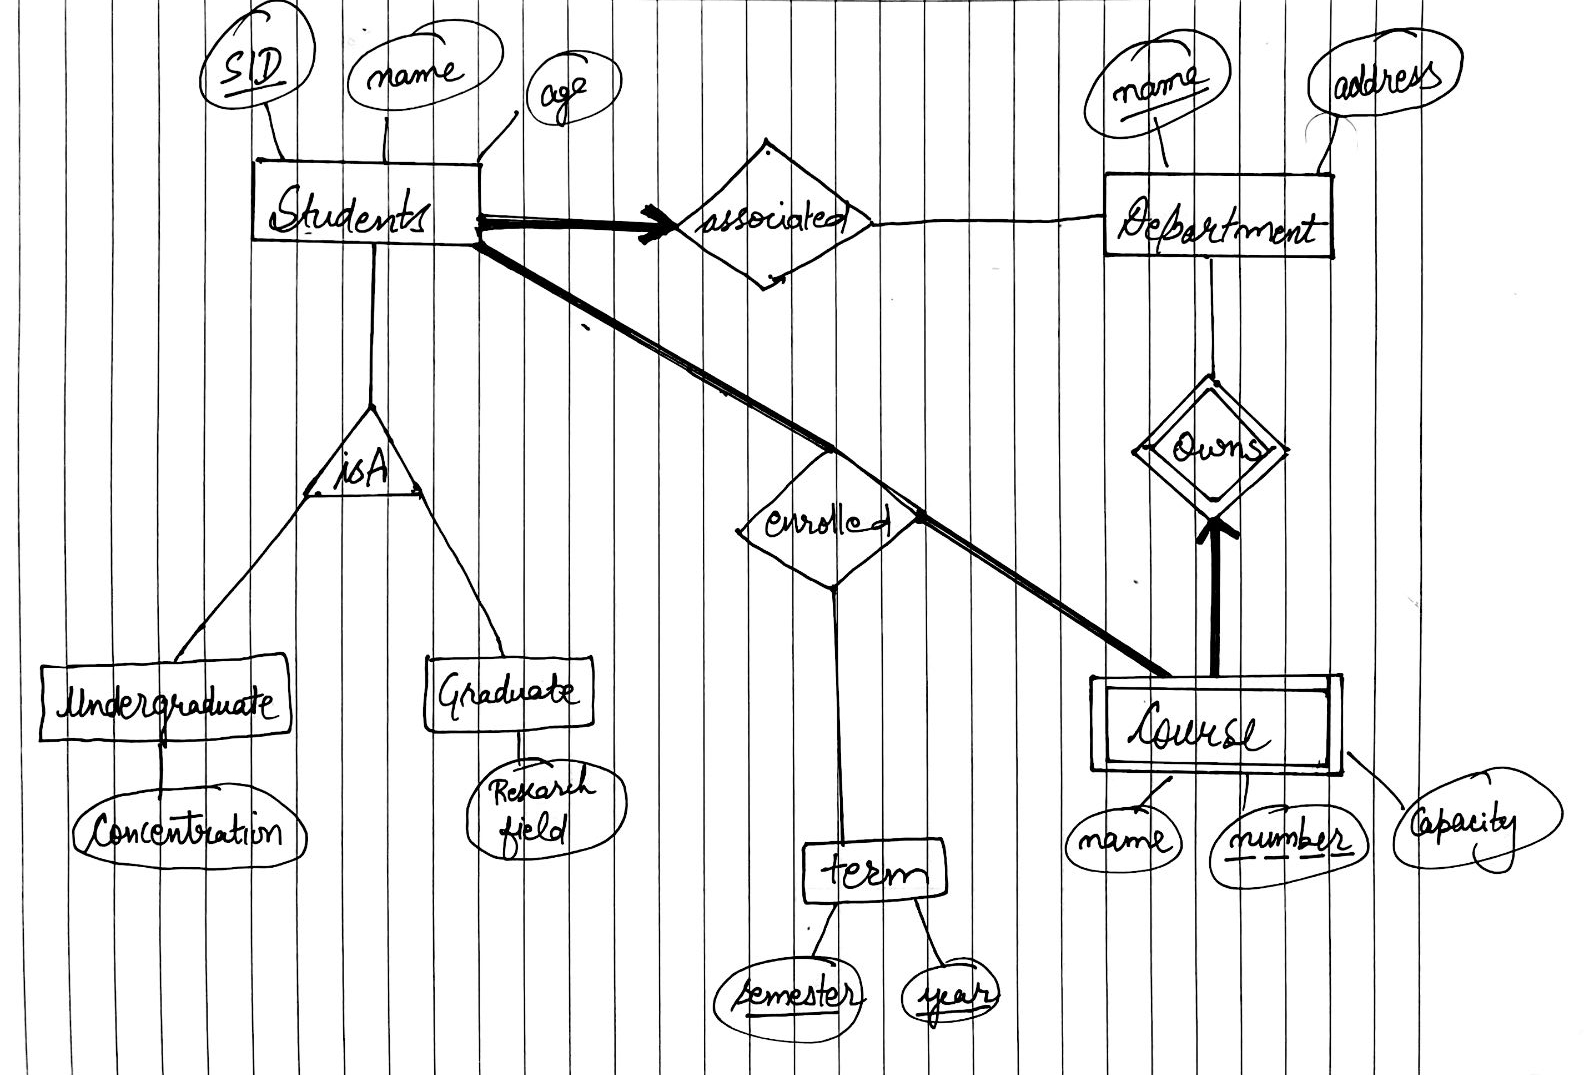 SID
name
age
name
address
Students
associated
Department
isA
enrolled
Owns
Undergraduate
Graduate
Course
Concentration
Research
field
term
name
number
Capacity
semester
year